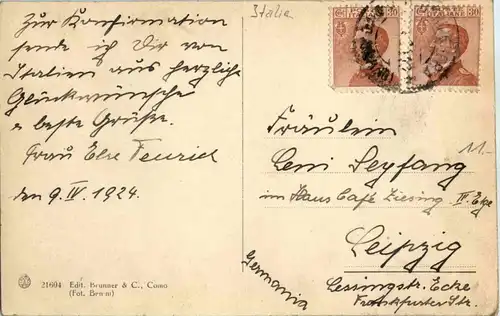 Zur Konfirmation
sende ich Dir von
Italien aus herzliche
Glückwünsche
u beste Grüße.
Frau Else Feurich
den 9. IV. 1924.
21604 Edit. Brunner & C., Como
(Fot. Brunn)
Italia
80
80
ITALIANE
Fräulein
Leni Seyfang
im Haus Café Ziesing IV. Eke
Leipzig
Lessingstr. Ecke
Frankfurter Str.
Germania
11.-